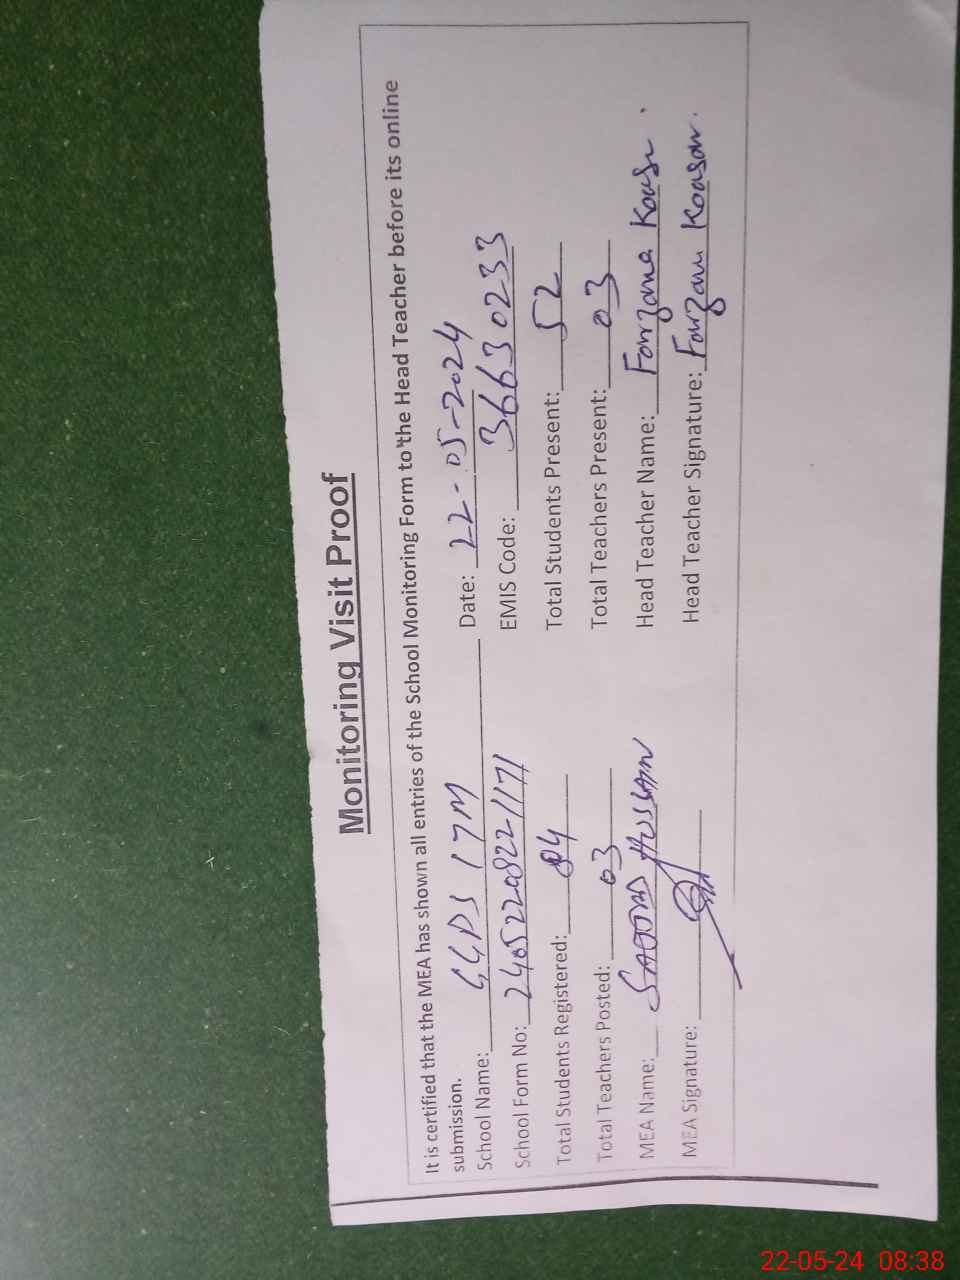 Monitoring Visit Proof
It is certified that the MEA has shown all entries of the School Monitoring Form to the Head Teacher before its online
submission.
School Name: GGPS 17M Date: 22-05-2024
School Form No: 240522082211171 EMIS Code: 36630233
Total Students Registered: 84 Total Students Present: 52
Total Teachers Posted: 03 Total Teachers Present: 03
MEA Name: SAJJAD HUSSAIN Head Teacher Name: Farzana Kousr
MEA Signature: Head Teacher Signature: Farzan Kousar.
22-05-24 08:38